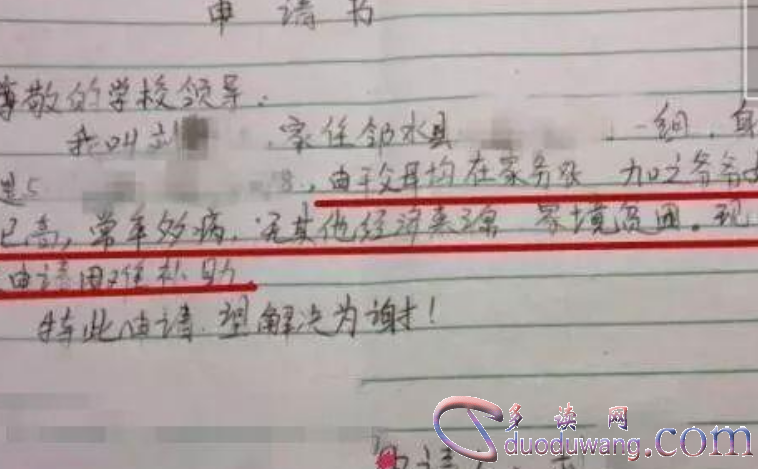 申请书
尊敬的学校领导：
我叫刘 家住邻水县 一组，身
是5 8，由于父母均在家务农 加之爷爷
已高，常年多病，无其他经济来源 家境贫困。现
申请困难补助
特此申请，望解决为谢！
多读网
duoduwang.com
申请人